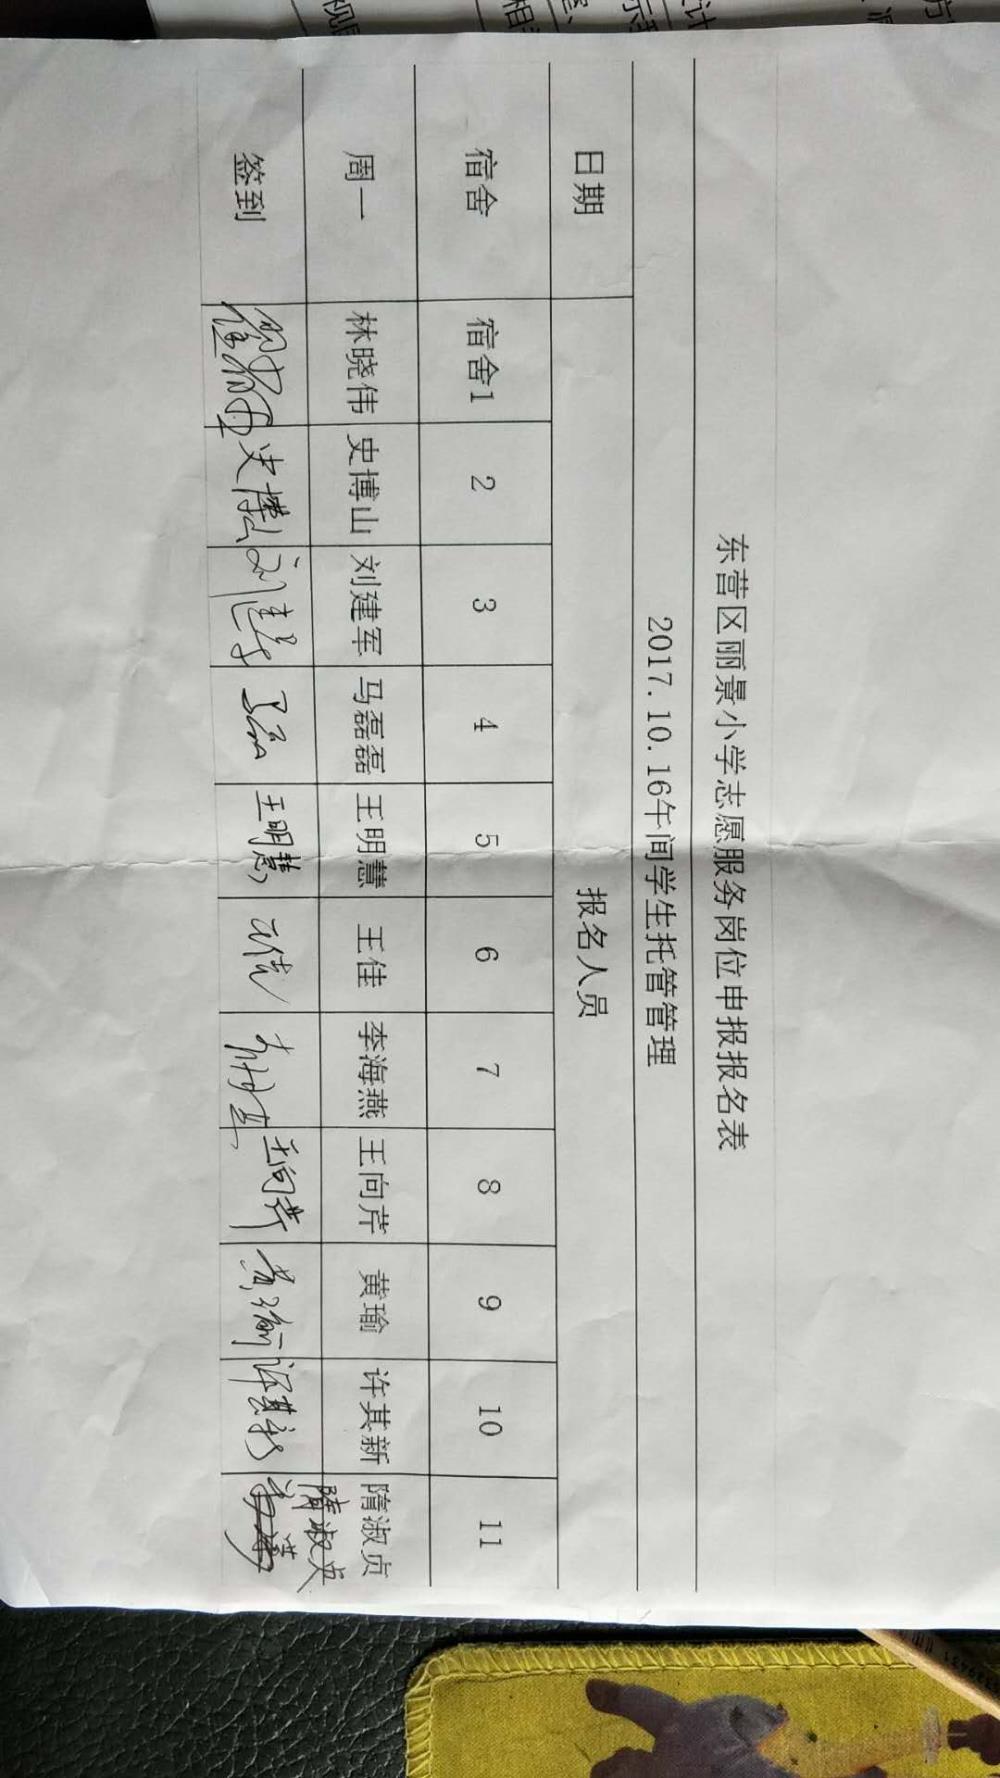 东营区丽景小学志愿服务岗位申报报名表
2017.10.16午间学生托管管理
日期 报名人员
宿舍 宿舍1 2 3 4 5 6 7 8 9 10 11
周一 林晓伟 史博山 刘建军 马磊磊 王明慧 王佳 李海燕 王向芹 黄瑜 许其新 隋淑贞
签到 史博山 刘建军 王明慧 王佳 王向芹 黄瑜 许其新 隋淑贞